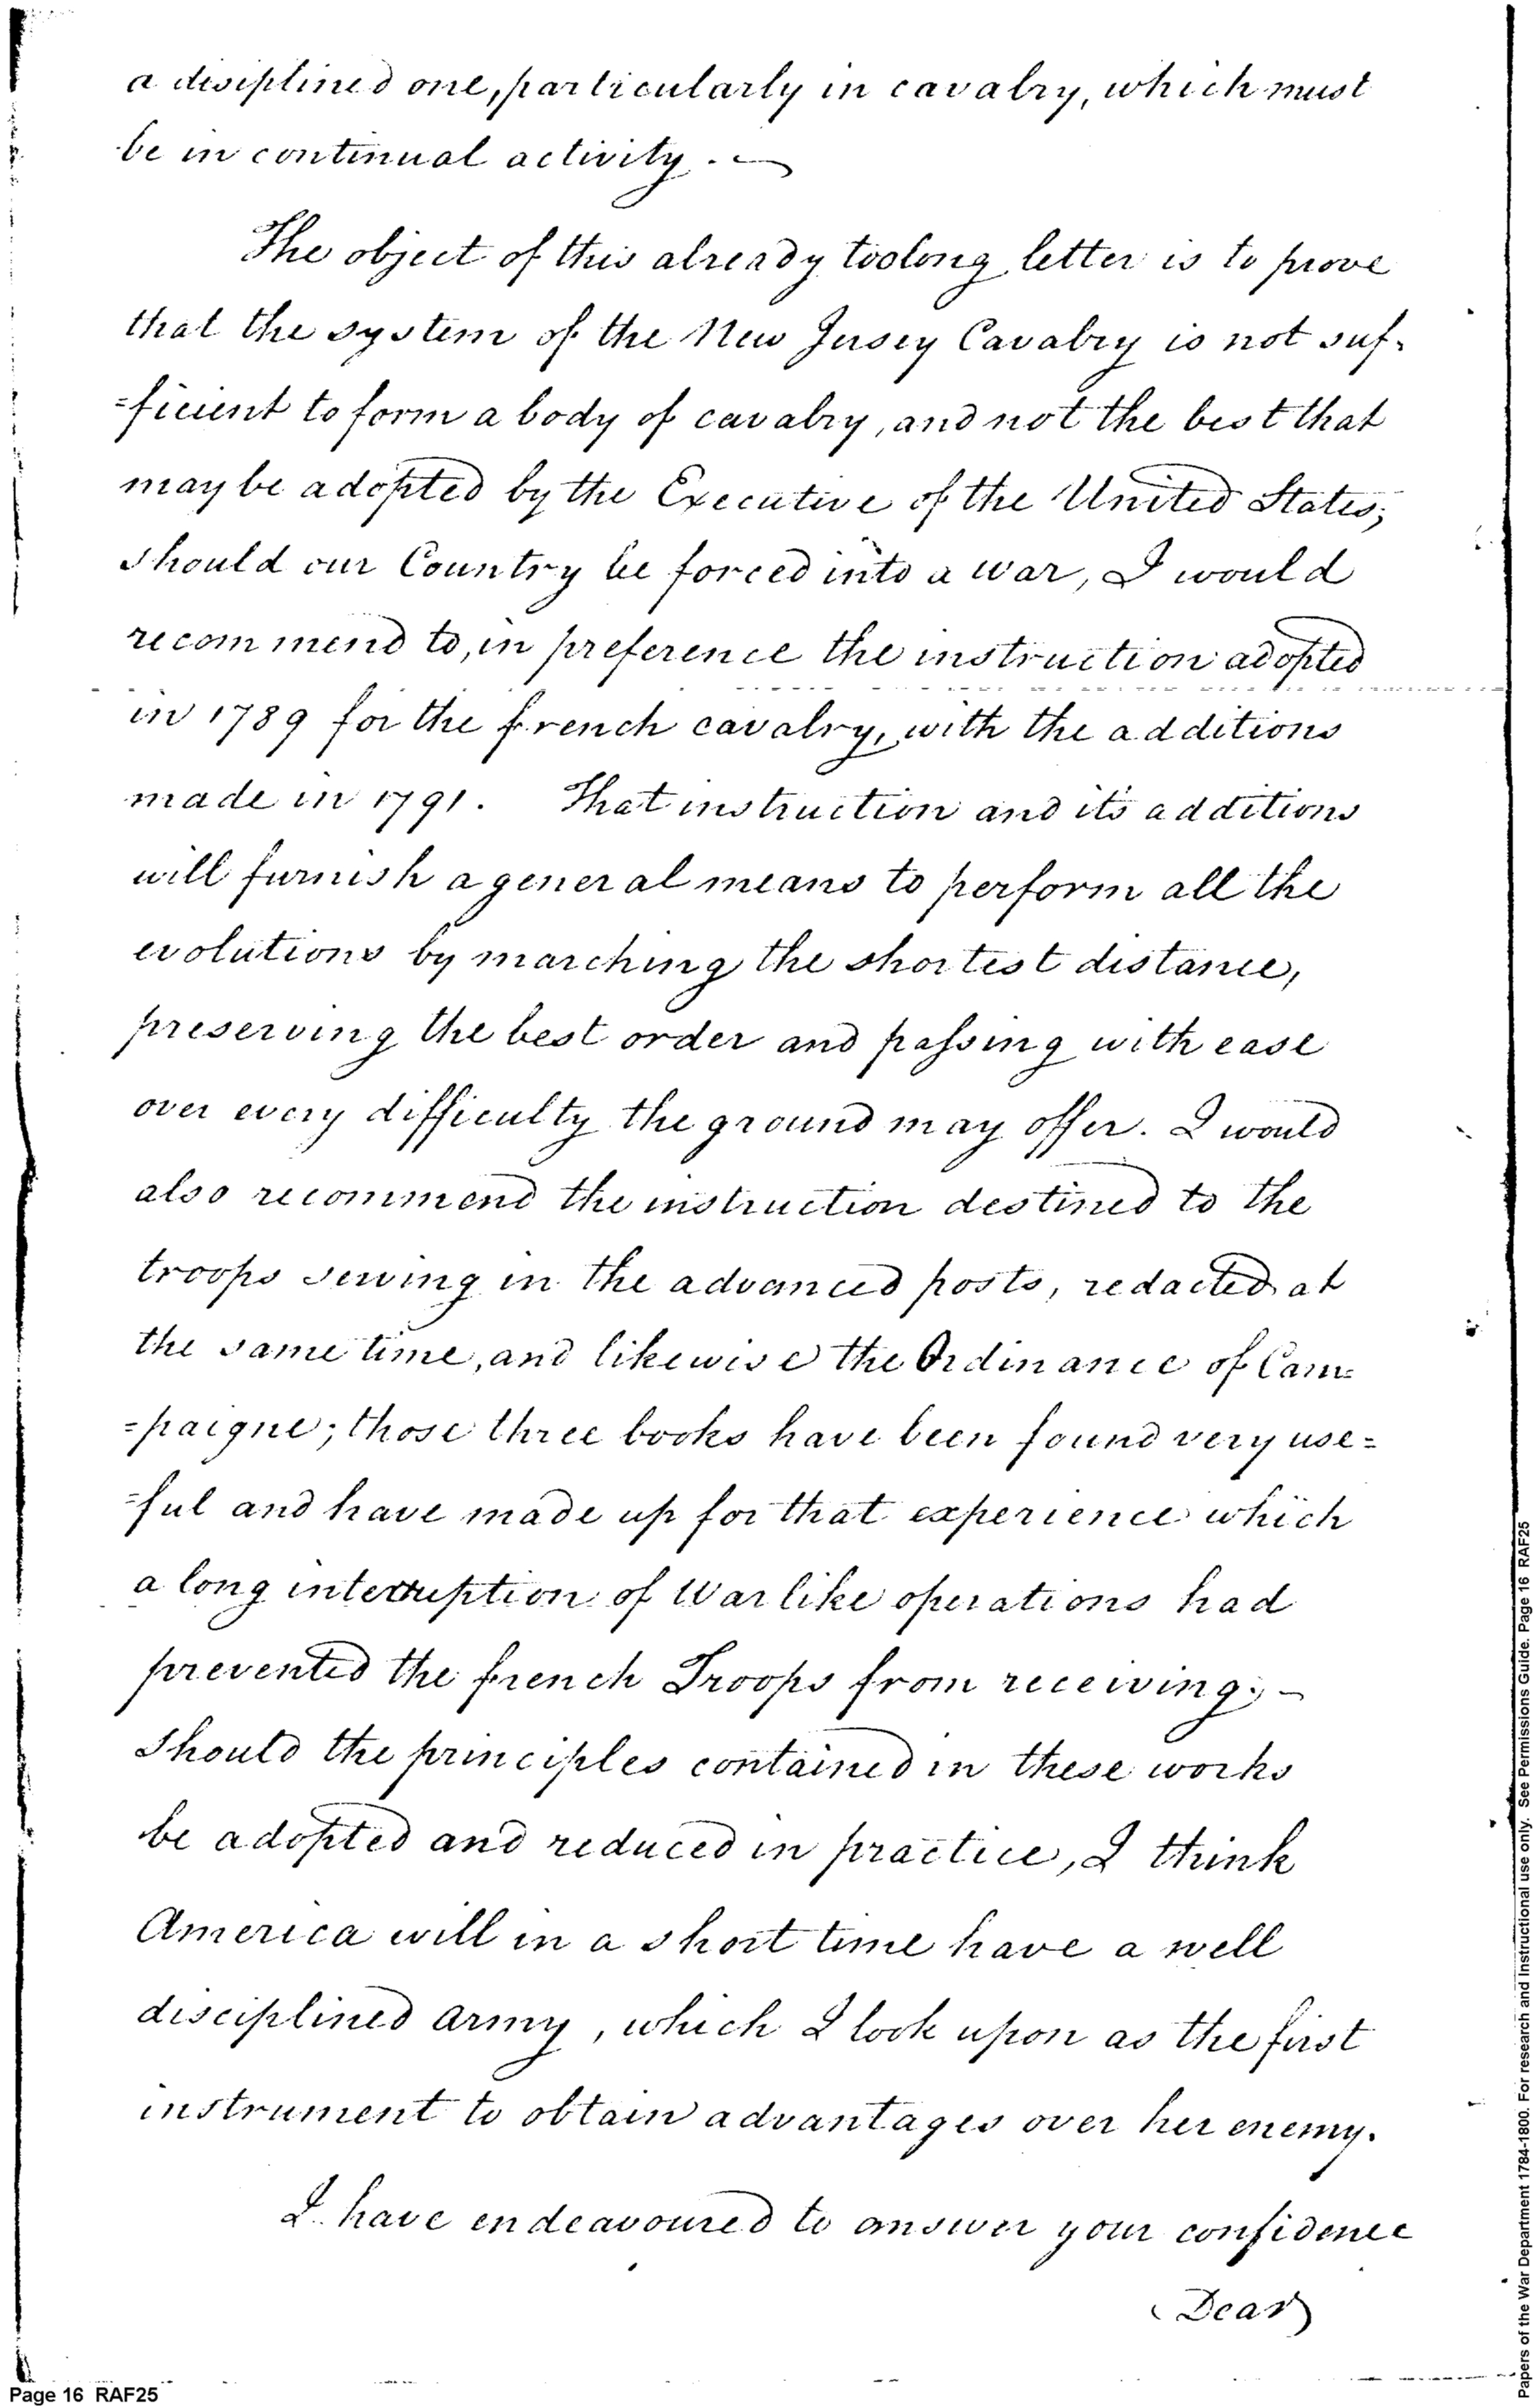 a disiplined one, particularly in cavalry, which must
be in continual activity. —
The object of this already too long letter is to prove
that the system of the New Jersey Cavalry is not suf-
=ficient to form a body of cavalry, and not the best that
may be adopted by the Executive of the United States;
should our Country be forced into a war, I would
recommend to, in preference the instruction adopted
in 1789 for the french cavalry, with the additions
made in 1791. That instruction and it's additions
will furnish a general means to perform all the
evolutions by marching the shortest distance,
preserving the best order and passing with ease
over every difficulty the ground may offer. I would
also recommend the instruction destined to the
troops serving in the advanced posts, redacted at
the same time, and likewise the Ordinance of Cam=
=paigne; those three books have been found very use=
=ful and have made up for that experience which
a long interruption of War like operations had
prevented the french Troops from receiving; –
Should the principles contained in these works
be adopted and reduced in practice, I think
America will in a short time have a well
disciplined army, which I look upon as the first
instrument to obtain advantages over her enemy.
I have endeavoured to answer your confidence
Dear
Page 16 RAF25
Papers of the War Department 1784-1800. For research and instructional use only. See Permissions Guide. Page 16 RAF25